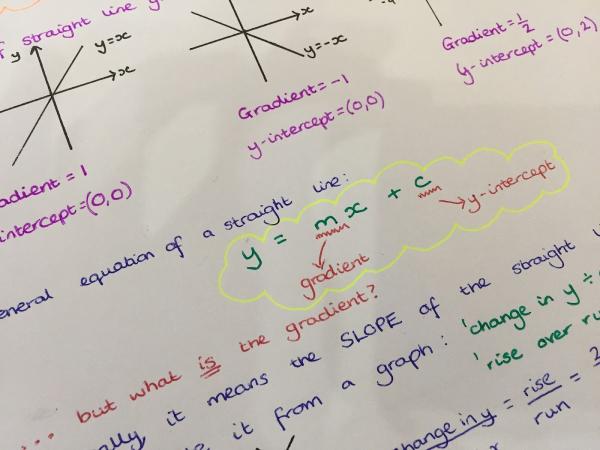 straight line
y
y=x
x
x
y=-x
Gradient = 1/2
y-intercept = (0,2)
Gradient = -1
y-intercept = (0,0)
= 1
= (0,0)
equation of a straight line:
y = mx + c
y-intercept
gradient
... but what is the gradient?
it means the SLOPE of the straight
it from a graph: 'change in y ÷
'rise over
change in y = rise = 2
run